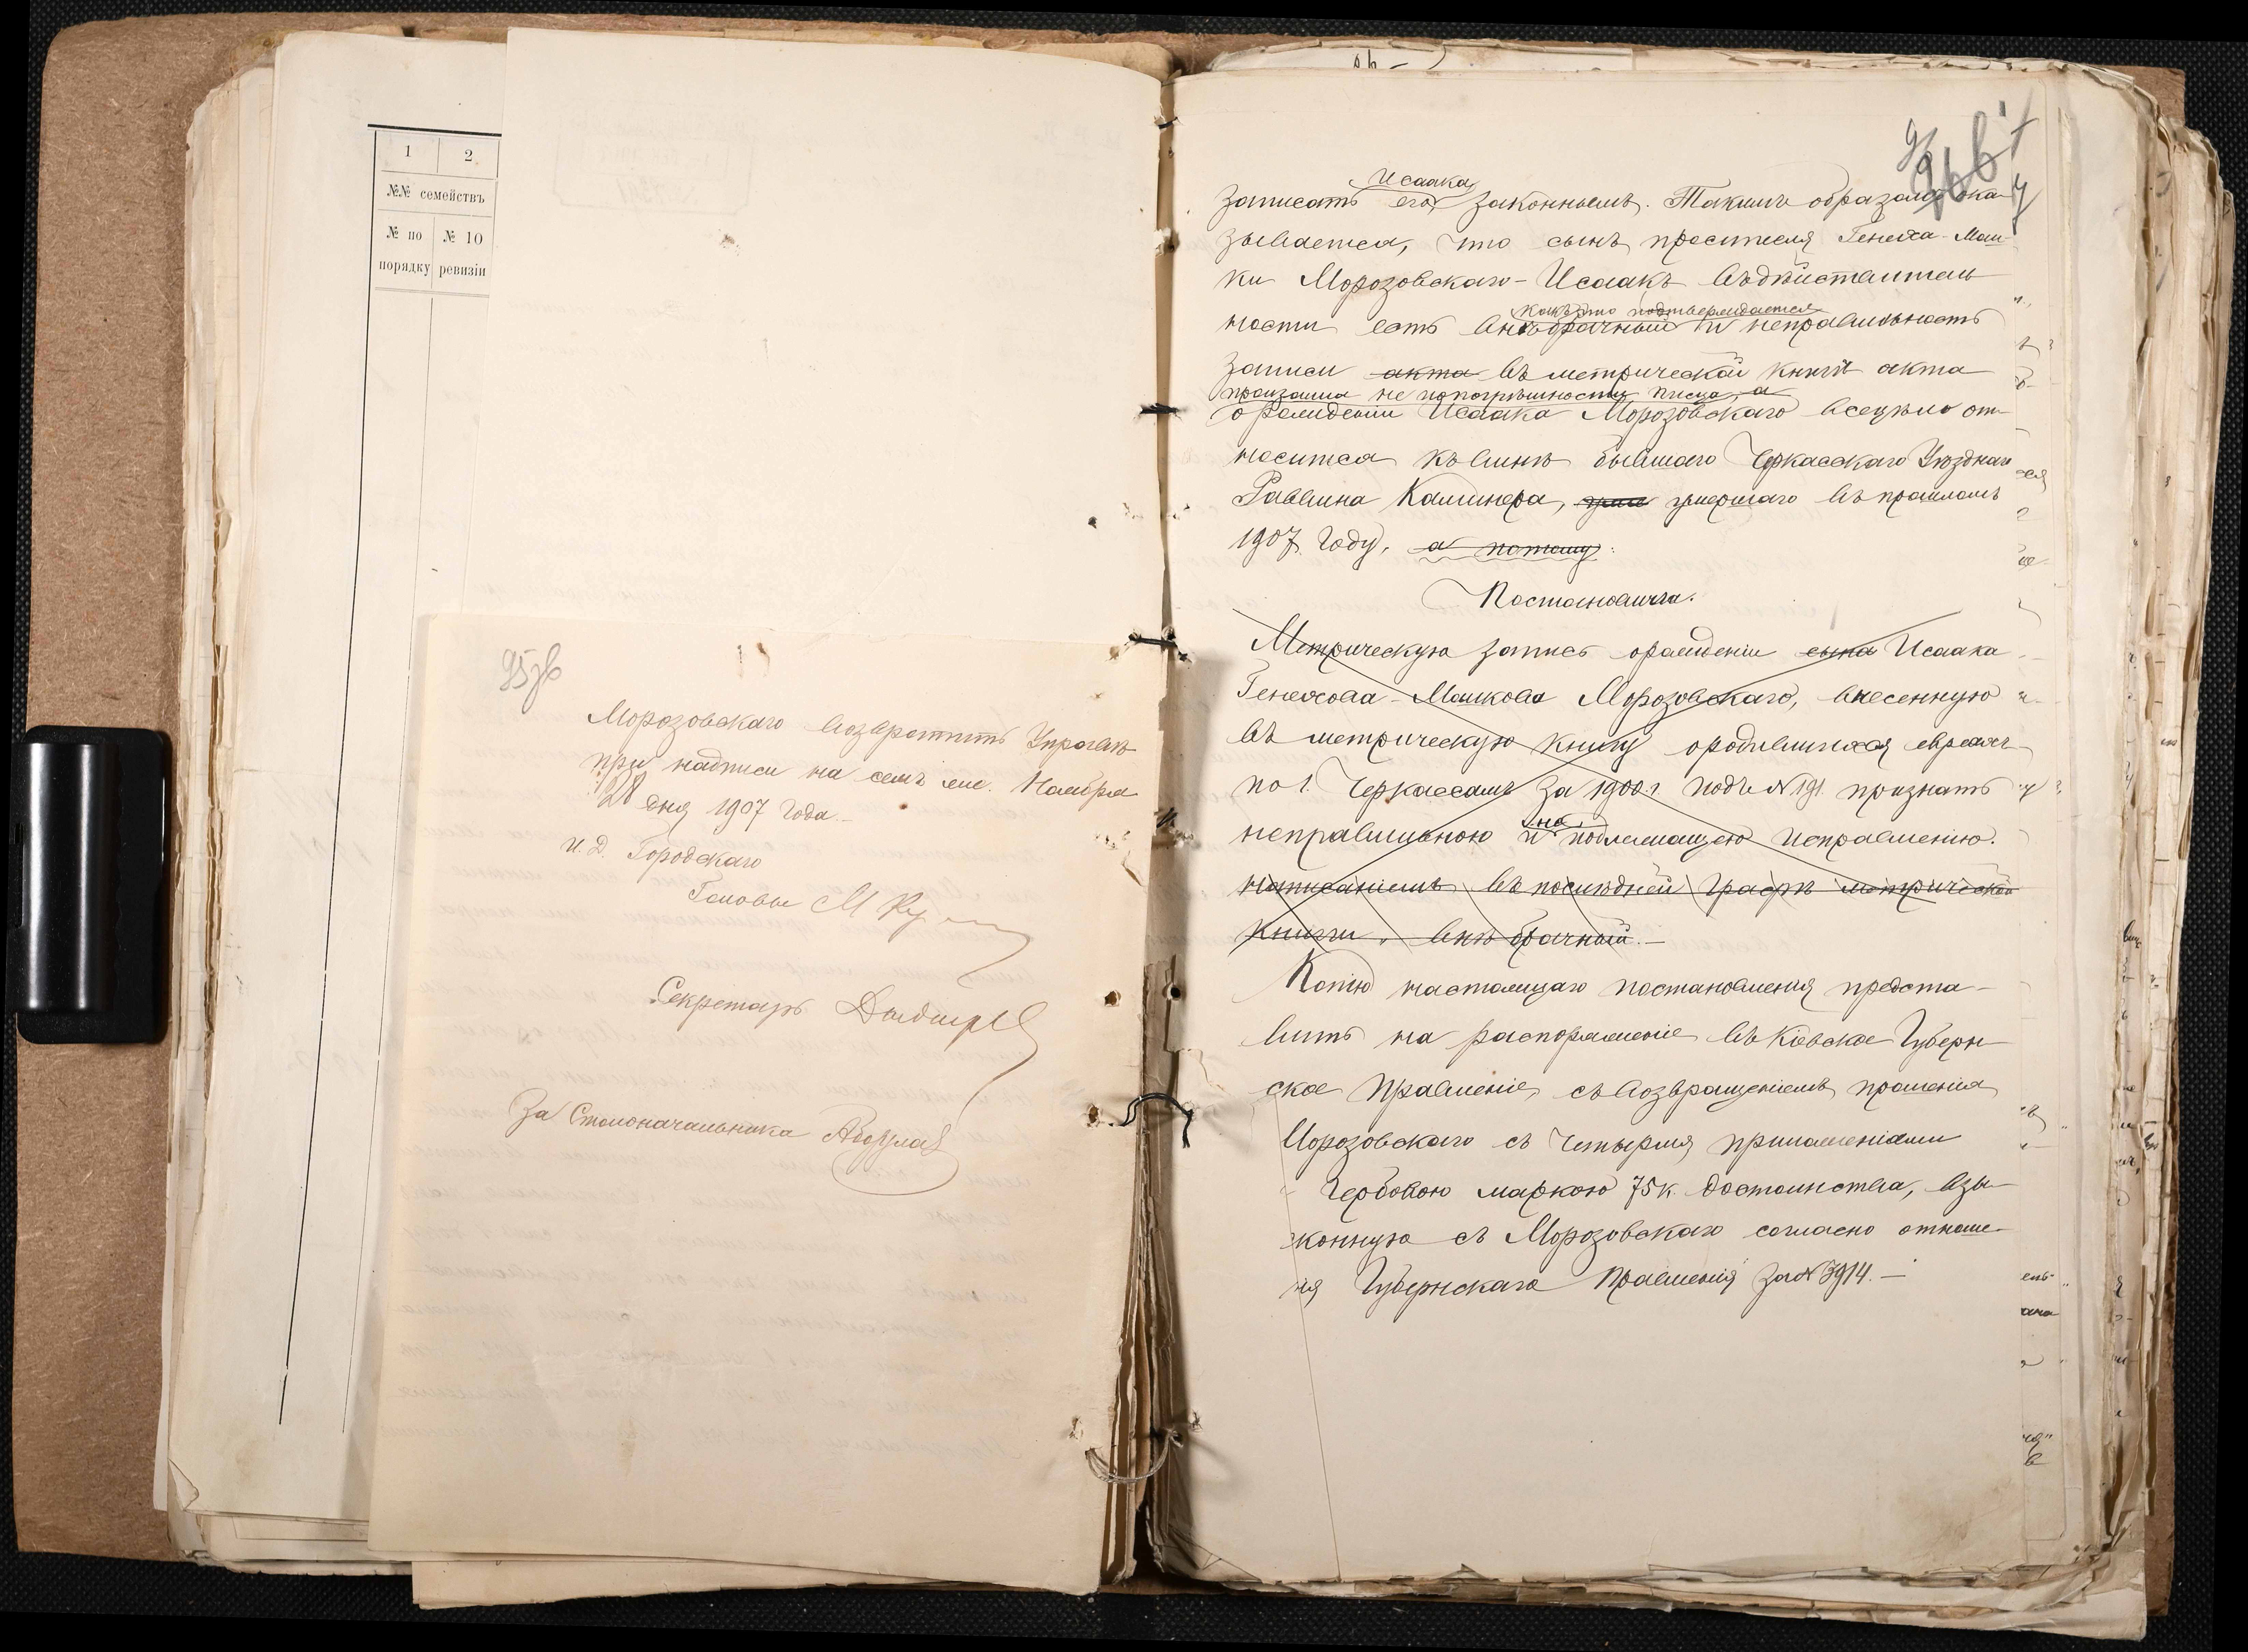 1 2
№№ семействъ
№ по № 10
порядку ревизіи
95об
Морозовскаго возвратить Управѣ
при надписи на семъ же. Ноября
28 дня 1907 года.
И. Д. Городскаго
Головы М
Секретарь
За Столоначальника
96
Исаака
записать его законнымъ. Такимъ образомъ ока
зывается, что сынъ просителя Генеха-Мош-
ки Морозовскаго-Исаакъ въ дѣйствитель
какъ это подтверждается
ности есть внѣбрачный и неправильность
записи акта въ метрической книгѣ акта
произошла не по погрѣшности писца, а
о рожденіи Исаака Морозовскаго всецѣло от
носится къ винѣ бывшаго Черкасскаго Уѣзднаго
Раввина Каминера, умершаго въ прошломъ
1907 году, а потому:
Постановила.
Метрическую запись о рожденіи сына Исаака
Генехова-Мошкова Морозовскаго, внесенную
въ метрическую книгу о родившихся евреяхъ
по г. Черкассамъ за 1900 г. подъ № 191 признать
но
неправильною и подлежащею исправленію.
написаніемъ въ послѣдней графѣ метрической
книги „внѣбрачный.—
Копію настоящаго постановленія предста-
вить на распоряженіе въ Кіевское Губерн
ское Правленіе, съ возвращеніемъ прошенія
Морозовскаго съ четырмя приложеніями
гербовою маркою 75 к. достоинства, взы
сканную съ Морозовскаго согласно отноше-
нія Губернскаго Правленія за № 3914.—